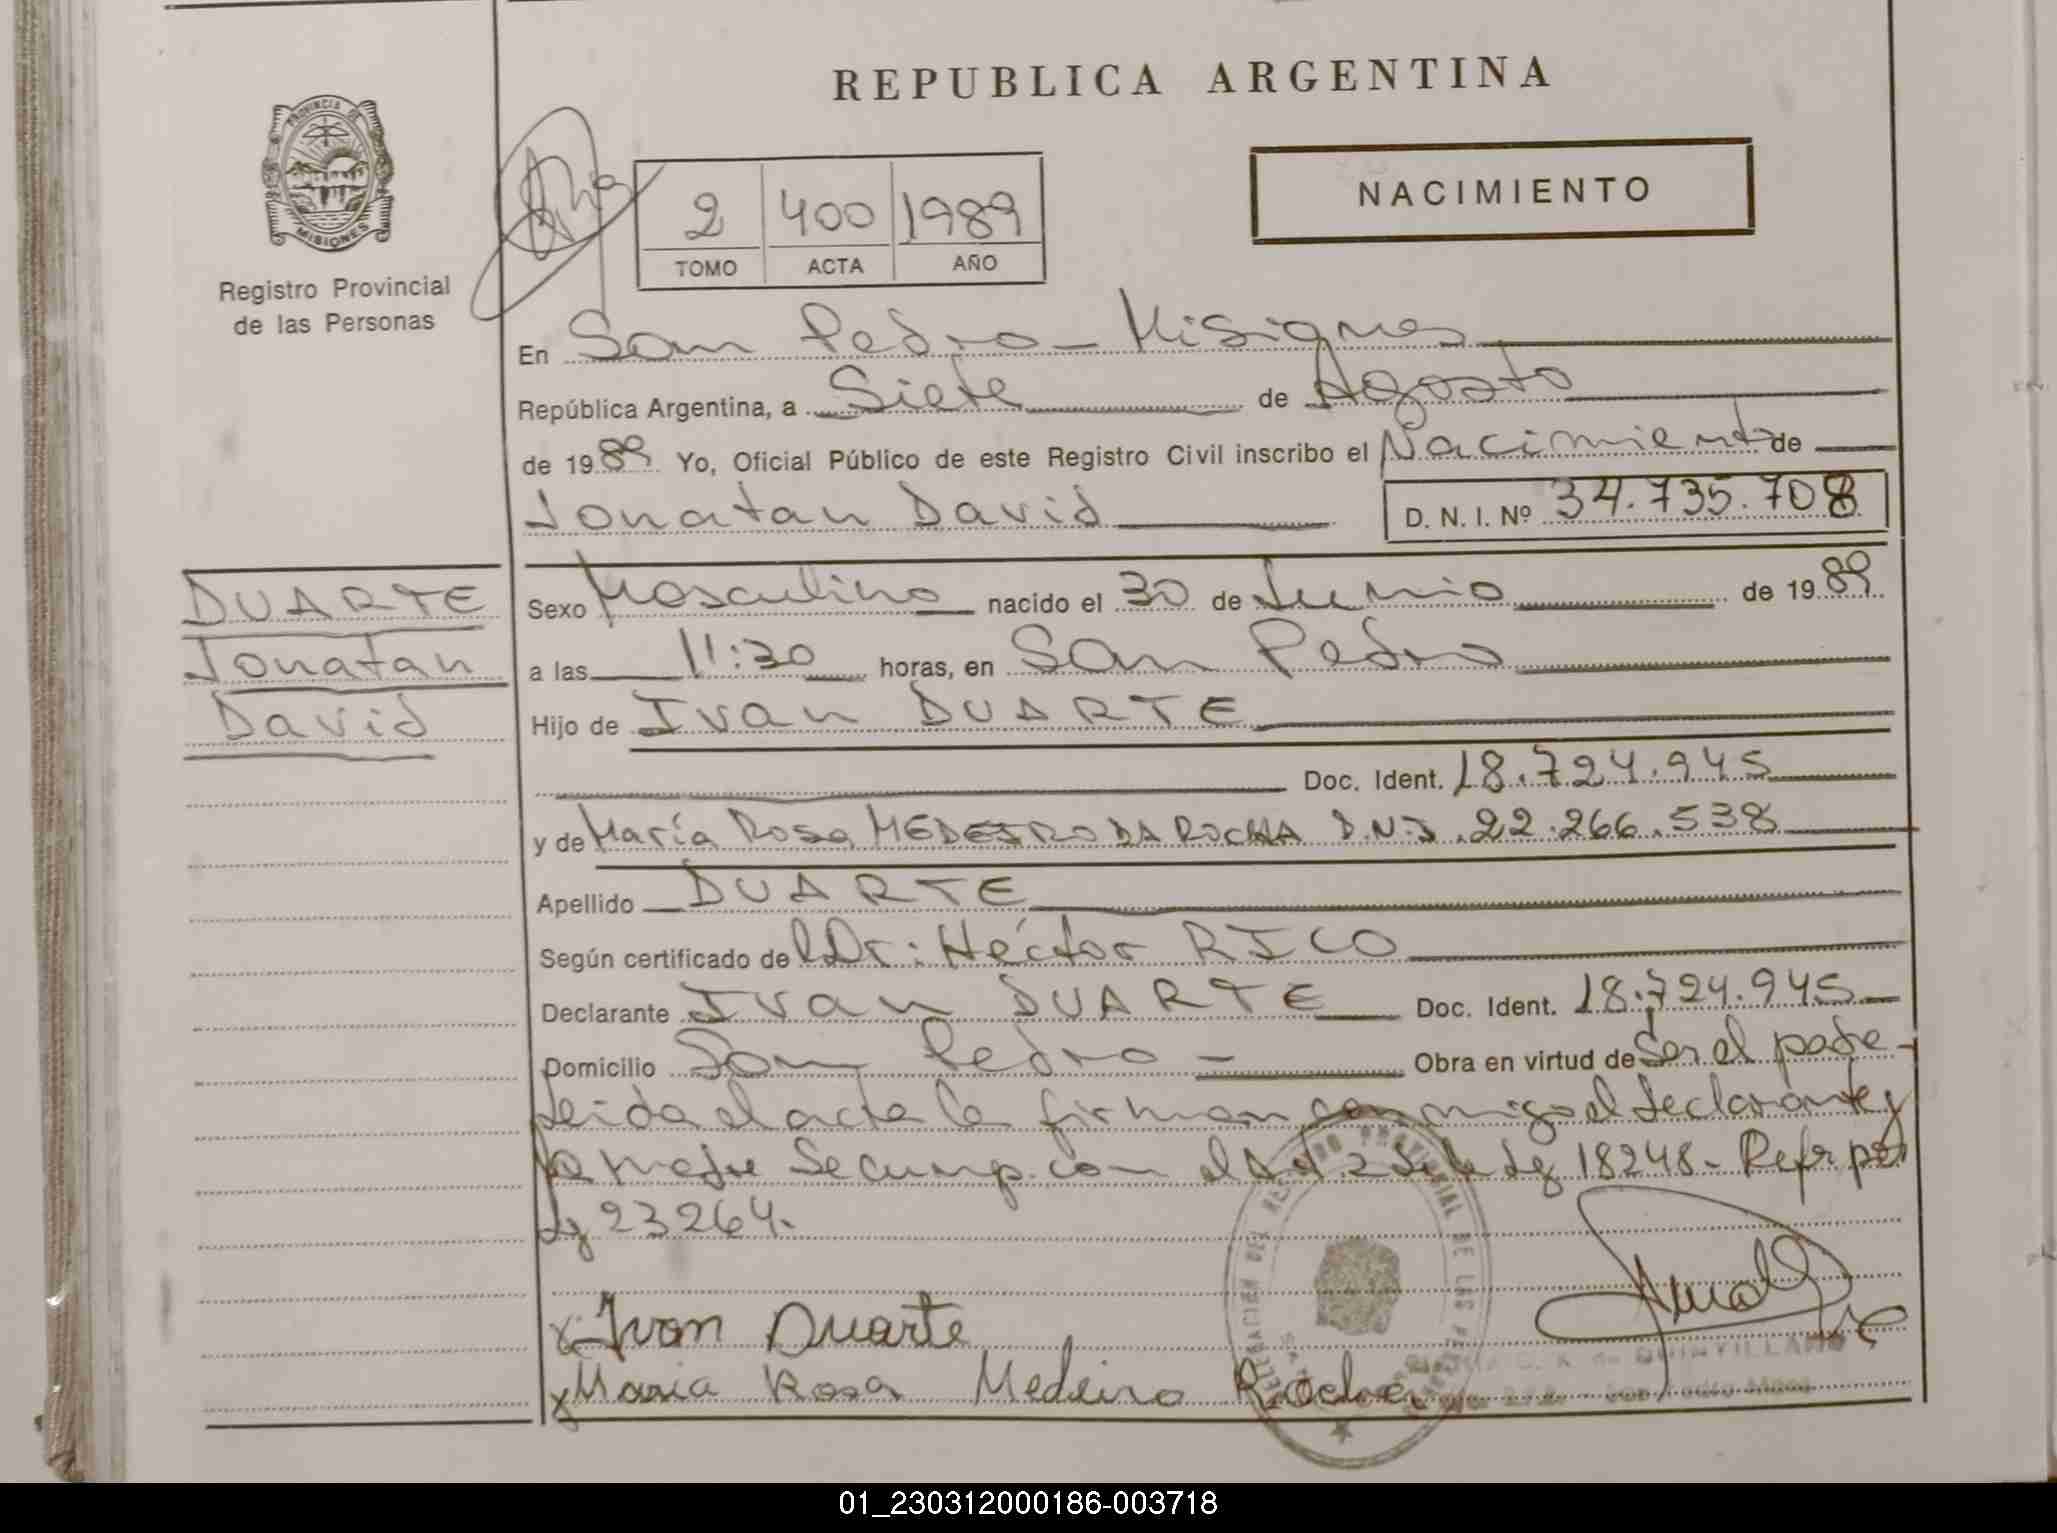 REPUBLICA ARGENTINA
PROVINCIA DE
MISIONES
Registro Provincial
de las Personas
NACIMIENTO
2 400 1989
TOMO ACTA AÑO
En San Pedro - Misiones
República Argentina, a Siete de Agosto
de 1989 Yo, Oficial Público de este Registro Civil inscribo el Nacimiento de
Jonatan David D. N. I. Nº 34.735.708
DUARTE
Jonatan
David
Sexo Masculino nacido el 30 de Junio de 1989
a las 11:30 horas, en San Pedro
Hijo de Ivan DUARTE
Doc. Ident. 18.724.945
y de María Rosa MEDEIRO DA ROCHA D.N.I. 22.266.538
Apellido DUARTE
Según certificado del Dr: Héctor RICO
Declarante Ivan DUARTE Doc. Ident. 18.724.945
Domicilio San Pedro - Obra en virtud de Ser el padre -
Leida el acta la firman conmigo el declarante y
la madre Se cump. con el Art 2 de la Ley 18248. Ref por
Ley 23264.
x Ivan Duarte
x Maria Rosa Medeiro Rocha
DELEGACION DEL REGISTRO PROVINCIAL DE LAS PERSONAS
de QUINTILLAN
01_230312000186-003718